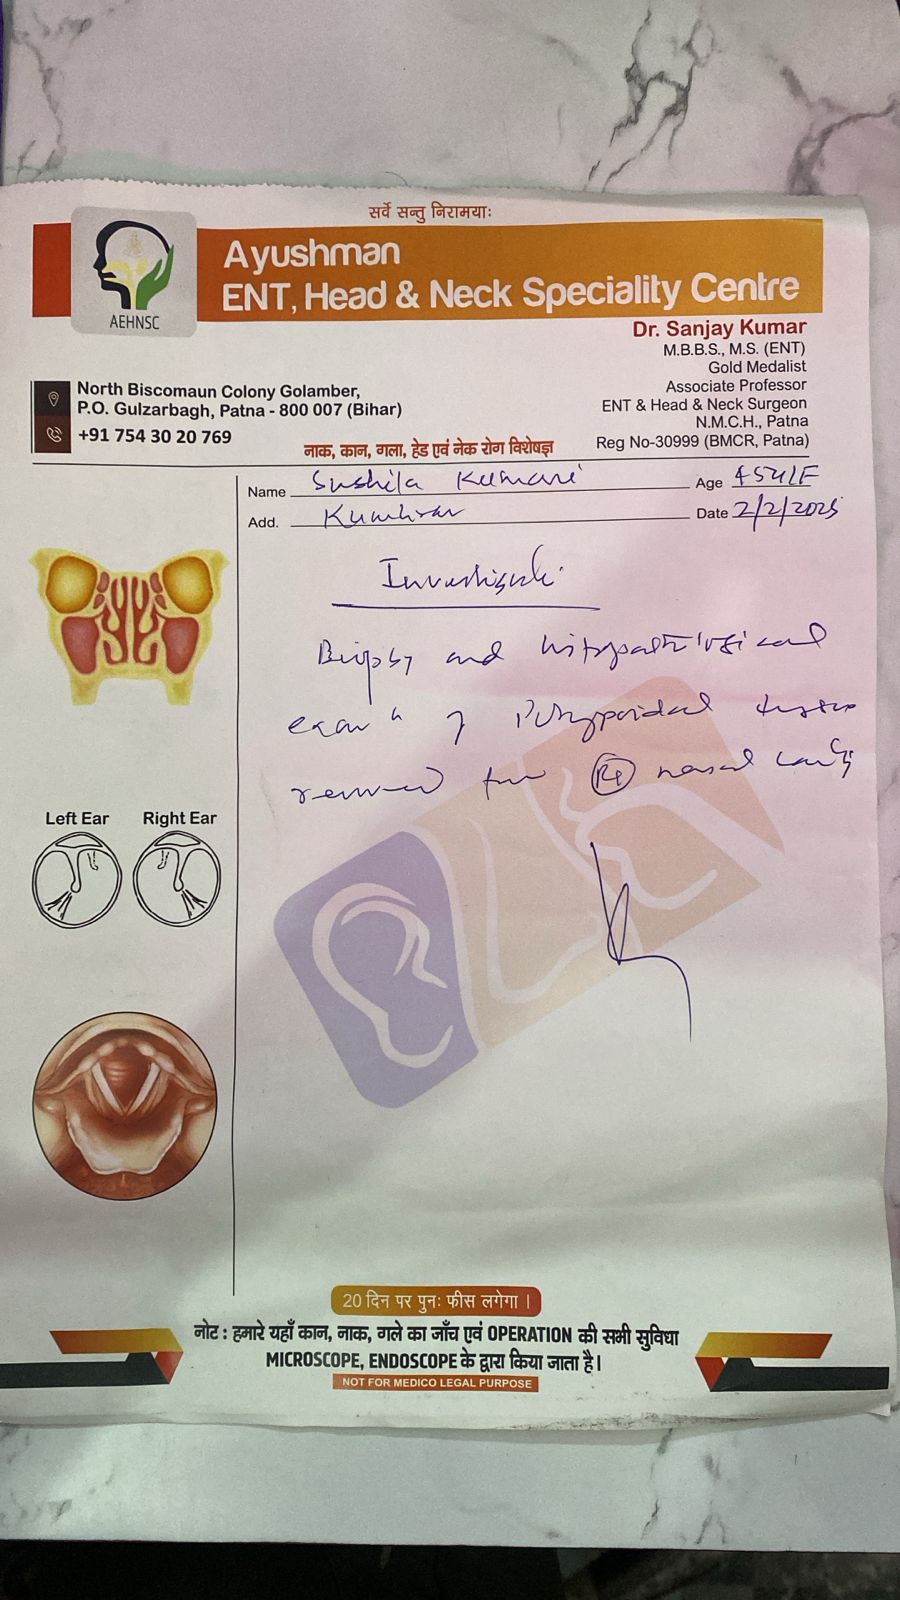 सर्वे सन्तु निरामयाः
Ayushman
ENT, Head & Neck Speciality Centre
AEHNSC
Dr. Sanjay Kumar
M.B.B.S., M.S. (ENT)
Gold Medalist
Associate Professor
ENT & Head & Neck Surgeon
N.M.C.H., Patna
Reg No-30999 (BMCR, Patna)
North Biscomaun Colony Golamber,
P.O. Gulzarbagh, Patna - 800 007 (Bihar)
+91 754 30 20 769
नाक, कान, गला, हेड एवं नेक रोग विशेषज्ञ
Name Sushila Kumari Age 45y/F
Add. Kumhrar Date 2/2/2025
Biopsy and histopathological
examn of Polypoidal tissue
removed from Rt nasal cavity
Left Ear Right Ear
20 दिन पर पुनः फीस लगेगा।
नोट : हमारे यहाँ कान, नाक, गले का जाँच एवं OPERATION की सभी सुविधा
MICROSCOPE, ENDOSCOPE के द्वारा किया जाता है।
NOT FOR MEDICO LEGAL PURPOSE